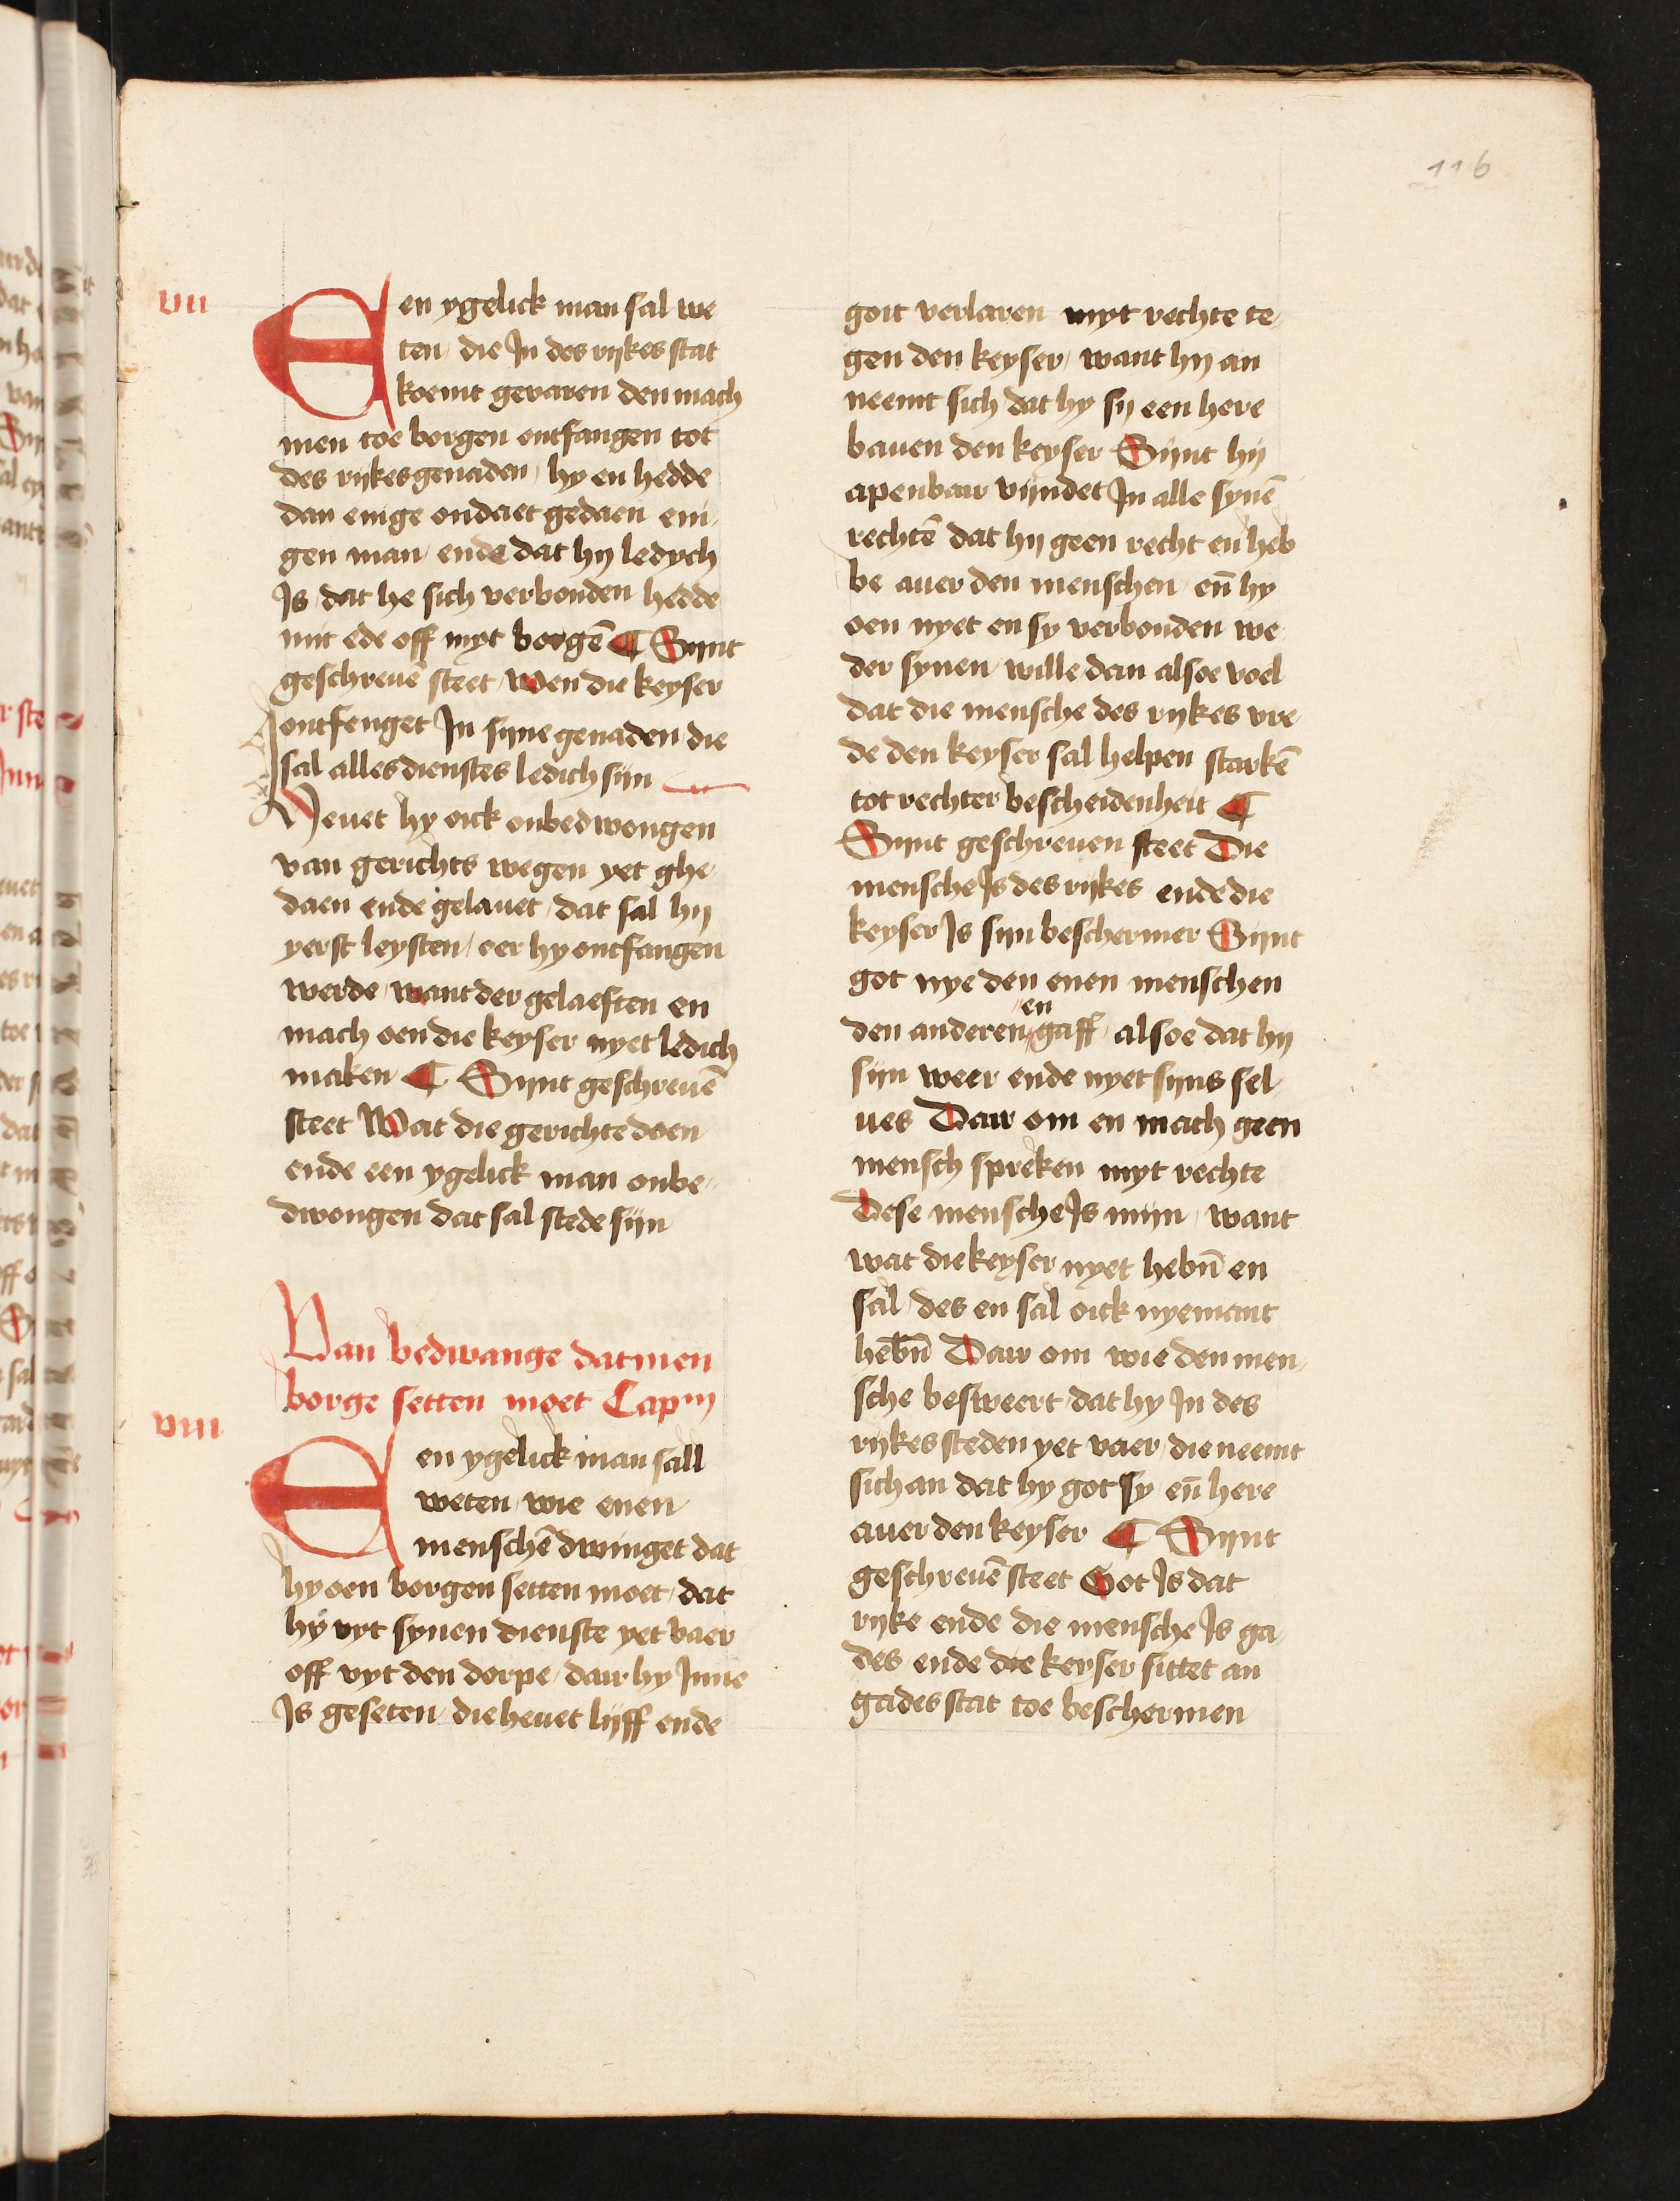 116
vii
Een ygelick man sal we
ten / die Jn des rijkes stat
koemt gevaren den mach
men toe borgen ontfangen tot
des rijkes genaden / hy en hedde
dan enige ondaet gedaen eni
gen man / ende dat hij ledych
Js / dat he sich verbonden hedde
mit ede off myt borgē ¶ Sijnt
geschreuē steet / Wen die keyser
ontfenget Jn sijne genaden / die
sal alles dienstes ledich sijn
Heuet hy oick onbedwongen
van gerichts wegen yet ghe
daen ende gelauet / dat sal hij
yerst leysten / eer hy ontfangen
werde / want der gelaeften en
mach oen die keyser nyet ledich
maken ¶ Sijnt geschreuē
steet Wat die gerichte doen
ende een ygelick man onbe„
dwongen dat sal stede sijn
Van bedwange dat men
borge setten moet Capm
viii
Een ygelick man sall
weten / wie enen
menschē dwinget dat
hy oen borgen setten moet / dat
hy vyt synen dienste yet vaer
off vyt den dorpe / dair hy Jnne
Js geseten / die heuet lijff ende
goit verlaren myt rechte te„
gen den keyser / want hij an
neemt sich dat hy sij een here
bauen den keyser Sijnt hij
apenbair vijndet Jn alle synē
rechtē dat hij geen recht en heb
be auer den menschen / eñ hy
oen nyet en sy verbonden we
der synen wille dan alsoe voel
dat die mensche des rijkes vre„
de den keyser sal helpen starkē
tot rechter bescheidenheit ¶
Sijnt geschreuen steet Die
mensche Js des rijkes / ende die
keyser Js sijn beschermer Sijnt
got nye den enen menschen
en
den anderen gaff / alsoe dat hij
sijn weer ende nyet sijns sel„
ues Dair om en mach geen
mensch spreken myt rechte
Dese mensche Js mijn / want
wat die keyser nyet hebn̄ en
sal / des en sal oick nyemant
hebn̄ Dair om wie den men„
sche besweert / dat hy Jn des
rijkes steden yet vaer / die neemt
sich an dat hy got sy / eñ here
auer den keyser ¶ Sijnt
geschreuē steet Got Js dat
rijke ende die mensche Js ga„
des ende die keyser sittet an
gades stat toe beschermen